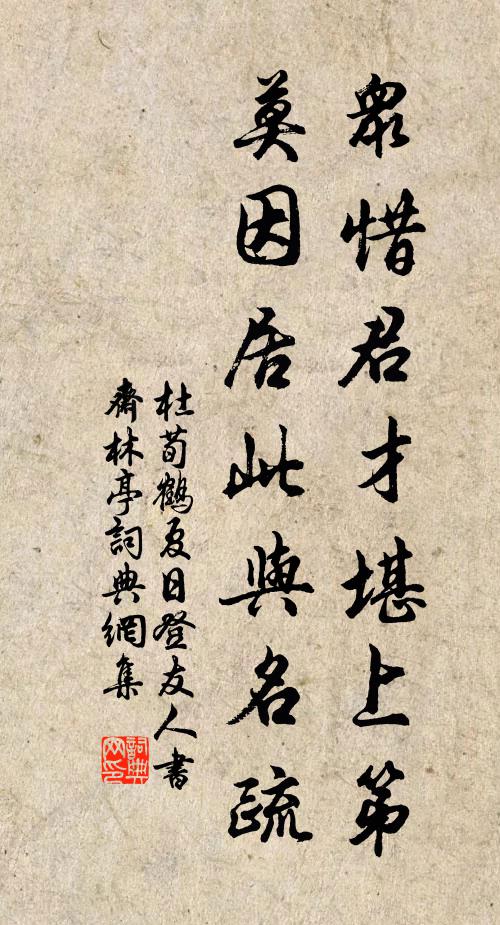 眾惜君才堪上第
莫因居此與名疏
杜荀鶴夏日登友人書
齋林亭詞典網集
詞典
网印